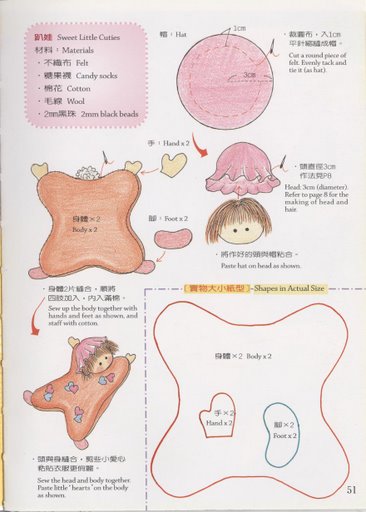 趴娃 Sweet Little Cuties
材料：Materials
· 不織布 Felt
· 糖果襪 Candy socks
· 棉花 Cotton
· 毛線 Wool
· 2mm黑珠 2mm black beads
帽：Hat
1cm
3cm
· 裁圓布，入1cm
平針縮縫成帽。
Cut a round piece of
felt. Evenly tack and
tie it (as hat)
手：Hand x 2
· 頭直徑3cm
作法見P8
Head: 3cm (diameter).
Refer to page 8 for the
making of head and
hair.
身體×2
Body x 2
腳：Foot x 2
· 將作好的頭與帽粘合。
Paste hat on head as shown.
· 身體2片縫合，順將
四肢加入，內入滿棉。
Sew up the body together with
hands and feet as shown, and
staff with cotton.
【實物大小紙型】Shapes in Actual Size
身體×2 Body x 2
手×2
Hand x 2
腳×2
Foot x 2
· 頭與身縫合，剪些小愛心
粘貼衣服更俏麗。
Sew the head and body together.
Paste little "hearts" on the body
as shown.
51